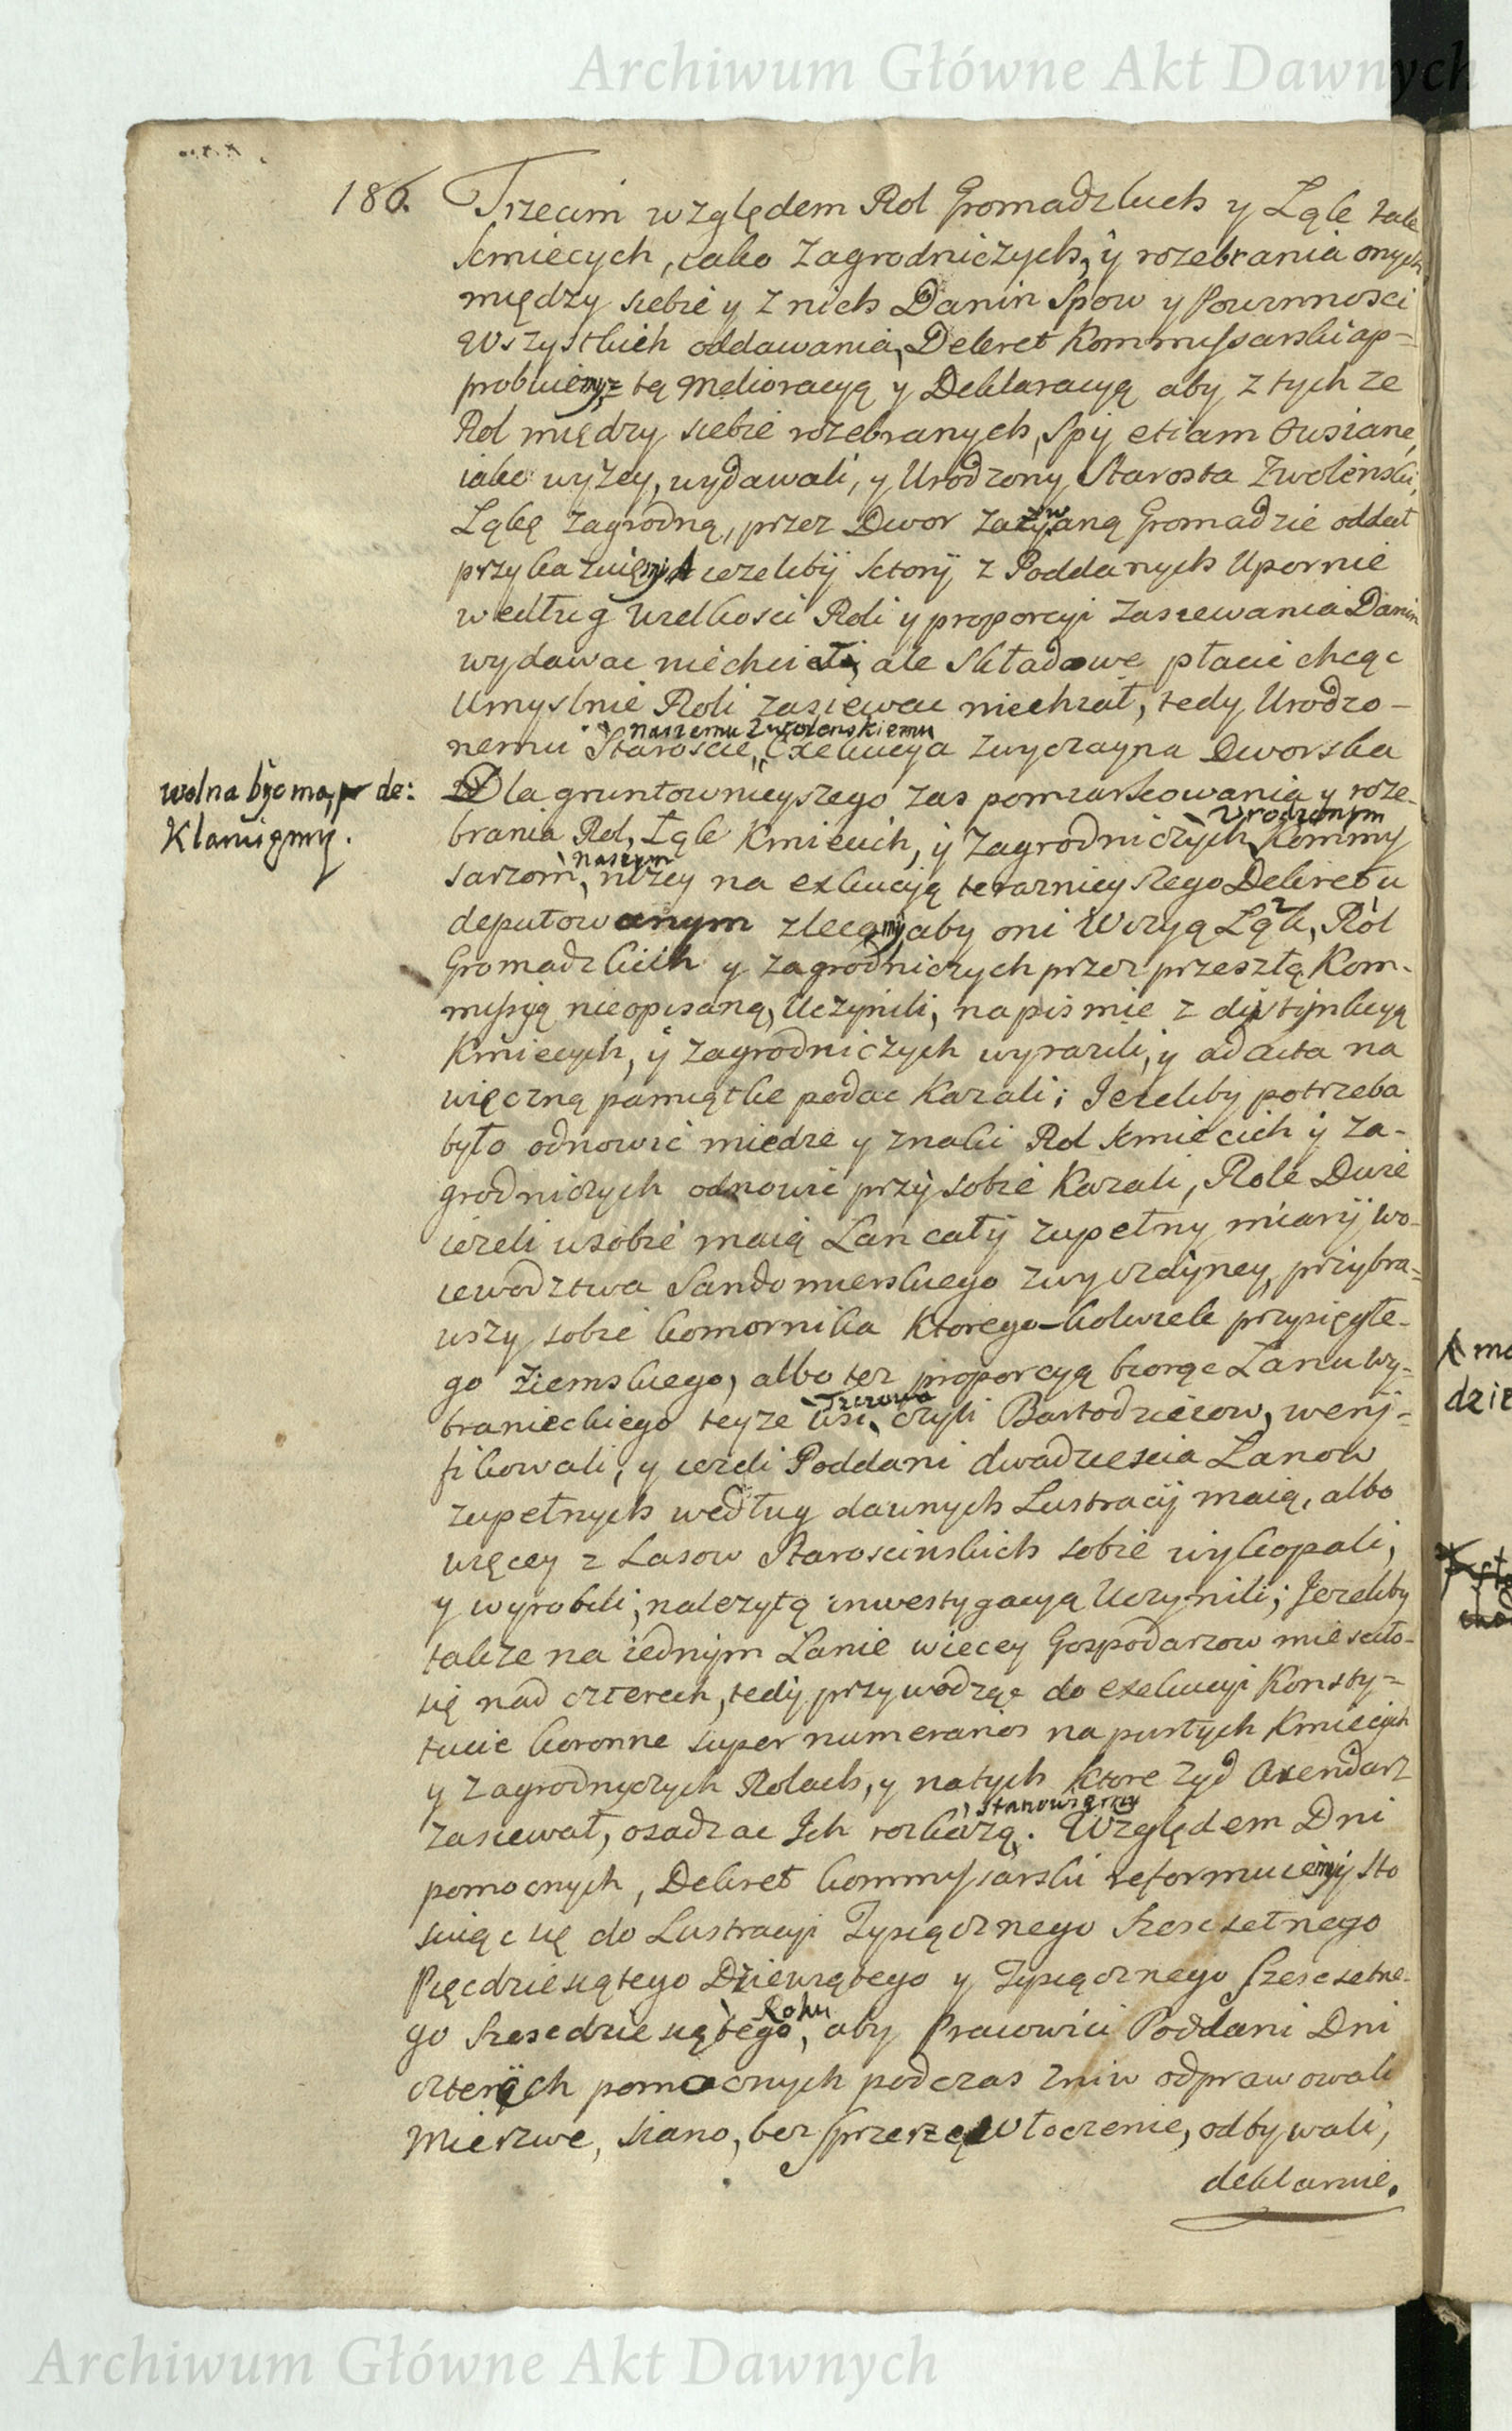 Archiwum Główne Akt Dawnych
186. Trzecim względem Rol Gromadzkich y Łąk tak
kmiecych, iako Zagrodniczych, y rozebrania onych
między siebie y z nich Danin Spow y Powinnosci
Wszystkich oddawania, Dekret Kommissarski ap=
probuiemy z tą Melioracyą y Deklaracyą aby z tych ze
Rol między siebie rozebranych, Spy etiam Owsiane,
iako wyzey, wydawali, y Urodzony Starosta Zwolenski,
Łąkę Zagrodną, przez Dwor zazywaną Gromadzie oddał
przykazuiemy iezeliby ktory z Poddanych Upornie
według wielkosci Roli y proporcyi zasiewania Danin
wydawac niechciał, ale Składowe płacic chcąc
Umyslnie Roli zasiewac niechzał, tedy Urodzo-
naszemu Zwolenskiemu
nemu Staroscie, Exekucya zwyczayna Dworska
wolna byc ma, de:
klaruiemy.
Dla gruntownieyszego zas pomiarkowania y roze-
brania Rol, Łąk Kmiecich, y Zagrodniczych Urodzonym Kommis
sarzom naszym, nizey na exekucyą terazniey szego Dekretu
deputowanym zlecamy aby oni Wizyą Łąk, Rol
Gromadzkich y Zagrodniczych przez przeszłą Kom-
missyą nieopisaną, Uczynili, na pismie z dystynkcyą
Kmiecych, y Zagrodniczych wyrazili, y ad acta na
więczną pamiątke podac kazali; Jezeliby potrzeba
było odnowic miedze y znaki Rol kmiecich y Za-
grodniczych odnowic przy sobie kazali, Role Dwie
iezeli w sobie maią Łan cały zupełny miary Wo-
iewodztwa Sandomierskiego zwyczayney, przybra=
wszy sobie komornika ktorego-kolwiek przysięgłe-
go Ziemskiego, albo tez proporcyą biorąc Łanu Wy=
branieckiego teyze wsi Tczowa, czyli Bartodzieiow, wery=
fikowali, y iezeli Poddani dwadziescia Łanow
zupełnych według dawnych Lustracij maią, albo
więcey z Lasow Staroscinskich sobie wykopali,
y wyrobili, nalezytą inwestygacyą Uczynili; Jezeliby
takze na iednym Łanie wiecey Gospodarzow miescito-
się nad czterech, tedy przywodząc do exekucyi Konsty=
tucie koronne supernumerarios na pustych Kmiecych
y Zagrodniczych Rolach, y na tych ktore Zyd Arendarz
zasiewał, osadzac Ich rozkazą stanowiemy. Względem Dni
pomocnych, Dekret kommissarski reformuiemy sto
suiąc się do Lustracyi Tysiącznego Szescsetnego
Pięcdziesiątego Dziewiątego y Tysiącznego Szescsetne-
go Szescdziesiątego Roku, aby Pracowici Poddani Dni
czterech pomocnych podczas zniw odprawowali
Mierzwe, siano, bez sprzezą Włoczenie, odbywali,
deklaruie.
Archiwum Główne Akt Dawnych